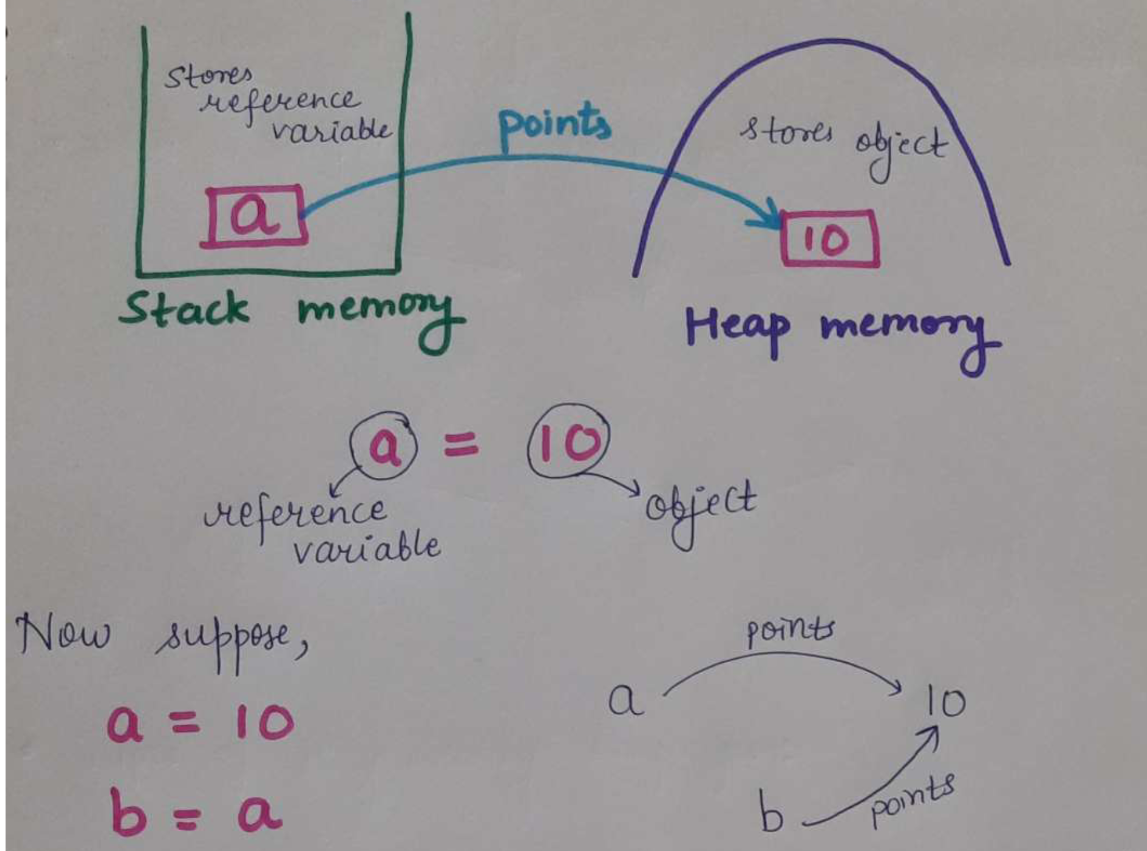 stores
reference
variable
a
points
stores object
10
Stack memory
Heap memory
a = 10
reference
variable
object
Now suppose,
a = 10
b = a
points
a
10
b
points